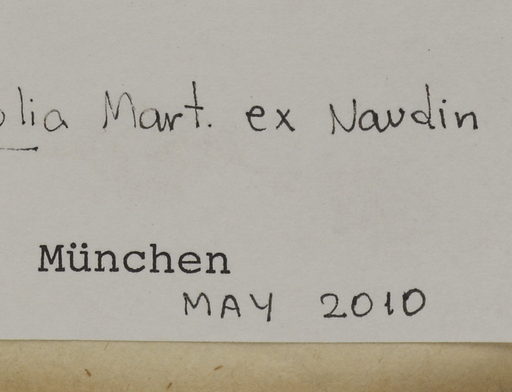 olia Mart. ex Naudin
München
MAY 2010